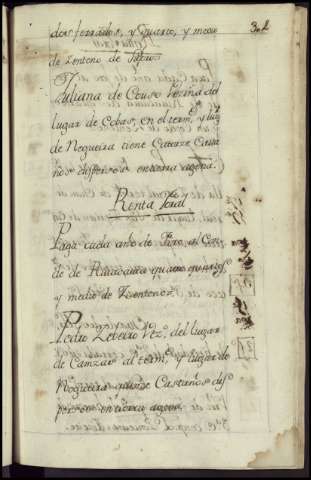 32
dos ferrados, y quarto, y medio
de Zenteno de fuero
Juliana de Couso Vezina del
lugar de Cobas, en el termº. y lugr
de Nogueira tiene Catorze Castaños
dispersos en tierra agena.
Renta foral
Paga cada año de fuero, al Conde
de quatro quartos
y medio de Zenteno
Pedro Zebeiro Vezº. del lugar
de al termº. y lugar de
Nogueira quinze Castaños dispersos
en tierra agena